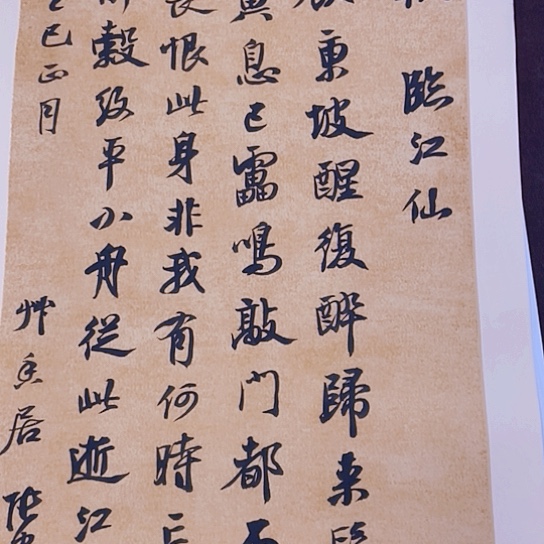 臨江仙
東坡醒復醉歸來
息已靁鳴敲門都
恨此身非我有何時
縠紋平小舟從此逝江
巳正月
艸香居